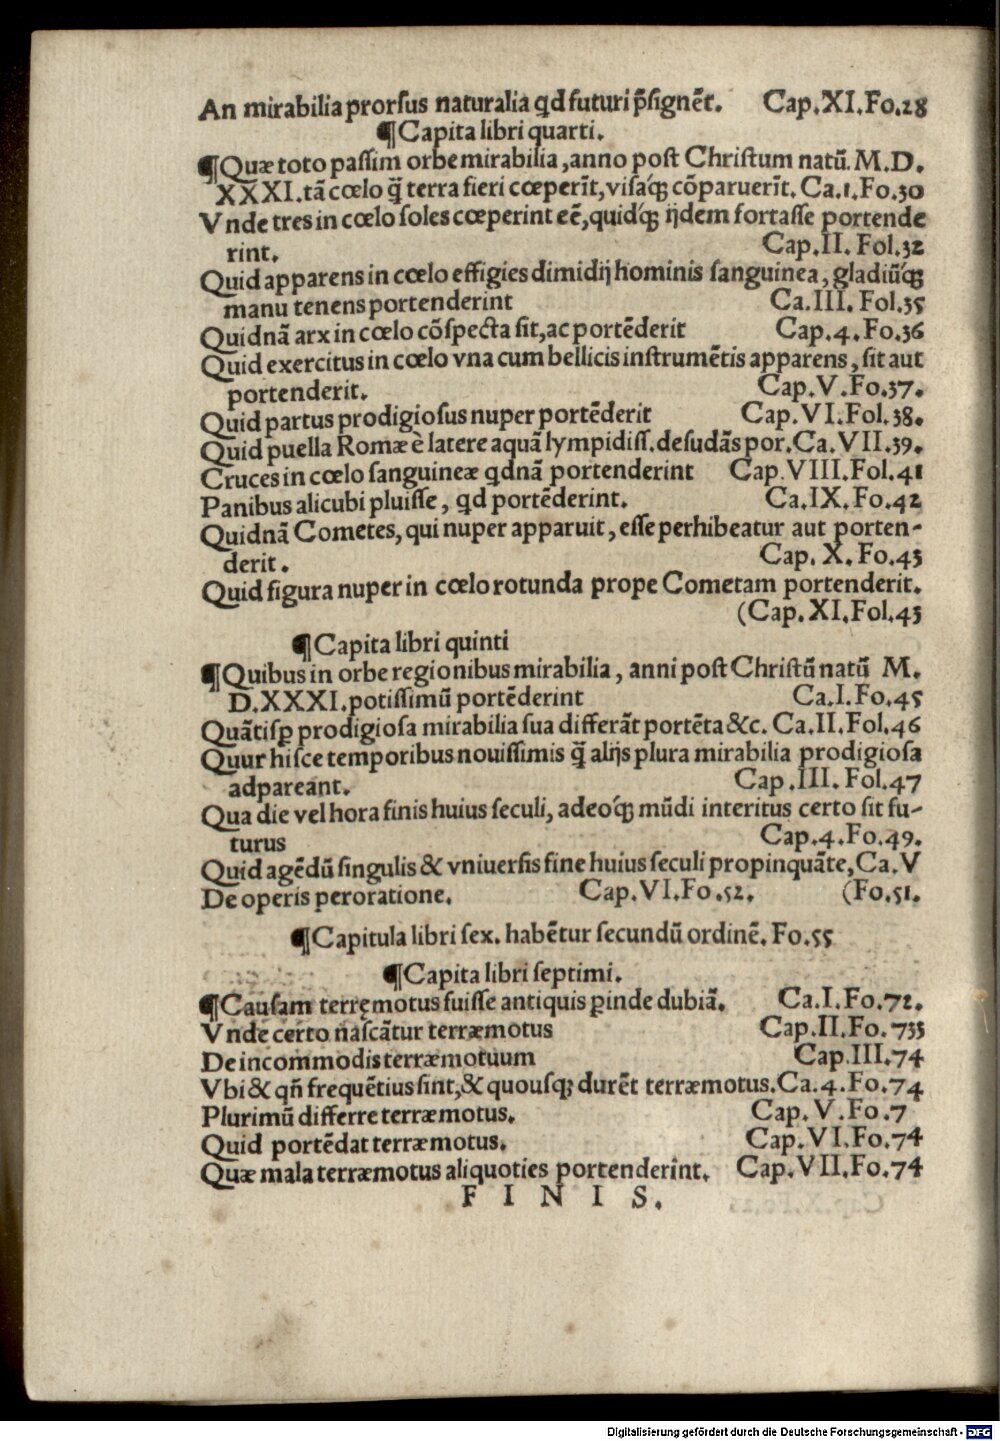 An mirabilia prorſus naturalia qd futuri p̃ſignẽt. Cap.XI.Fo.28
¶Capita libri quarti.
¶Quæ toto paſſim orbe mirabilia, anno poſt Chriſtum natũ.M.D.
XXXI.tã cœlo q̃ terra fieri cœperĩt, viſáq; cõparuerĩt. Ca.1.Fo.30
Vnde tres in cœlo ſoles cœperint eẽ, quidq́; ijdem fortaſſe portende
rint. Cap.II. Fol.32
Quid apparens in cœlo effigies dimidij hominis ſanguinea, gladiũq́;
manu tenens portenderint Ca.III. Fol.35
Quidnã arx in cœlo cõſpecta ſit, ac portẽderit Cap.4.Fo.36
Quid exercitus in cœlo vna cum bellicis inſtrumẽtis apparens, ſit aut
portenderit. Cap.V.Fo.37.
Quid partus prodigioſus nuper portẽderit Cap.VI.Fol.38.
Quid puella Romæ è latere aquã lympidiſſ.deſudãs por.Ca.VII.39.
Cruces in cœlo ſanguineæ qdnã portenderint Cap.VIII.Fol.41
Panibus alicubi pluiſſe, qd portẽderint. Ca.IX.Fo.42
Quidnã Cometes, qui nuper apparuit, eſſe perhibeatur aut porten-
derit. Cap. X. Fo.43
Quid figura nuper in cœlo rotunda prope Cometam portenderit.
(Cap.XI.Fol.43
¶Capita libri quinti
¶Quibus in orbe regionibus mirabilia, anni poſt Chriſtũ natũ M.
D.XXXI.potiſſimũ portẽderint Ca.I.Fo.45
Quãtiſꝑ prodigioſa mirabilia ſua differãt portẽta &c. Ca.II.Fol.46
Quur hiſce temporibus nouiſſimis q̃ alijs plura mirabilia prodigioſa
adpareant. Cap.III. Fol.47
Qua die vel hora finis huius ſeculi, adeoq́; mũdi interitus certo ſit fu-
turus Cap.4.Fo.49.
Quid agẽdũ ſingulis & vniuerſis fine huius ſeculi propinquãte, Ca.V
De operis peroratione. Cap.VI.Fo.52. (Fo.51.
¶Capitula libri ſex. habẽtur ſecundũ ordinẽ. Fo.55
¶Capita libri ſeptimi.
¶Cauſam terręmotus fuiſſe antiquis ꝑinde dubiã. Ca.I.Fo.72.
Vnde certo naſcãtur terræmotus Cap.II.Fo.733
De incommodis terræmotuum Cap.III.74
Vbi & qñ frequẽtius ſint, & quouſq; durẽt terræmotus.Ca.4.Fo.74
Plurimũ differre terræmotus. Cap.V.Fo.7
Quid portẽdat terræmotus. Cap.VI.Fo.74
Quæ mala terræmotus aliquoties portenderint. Cap.VII.Fo.74
F I N I S.
Digitalisierung gefördert durch die Deutsche Forschungsgemeinschaft - DFG